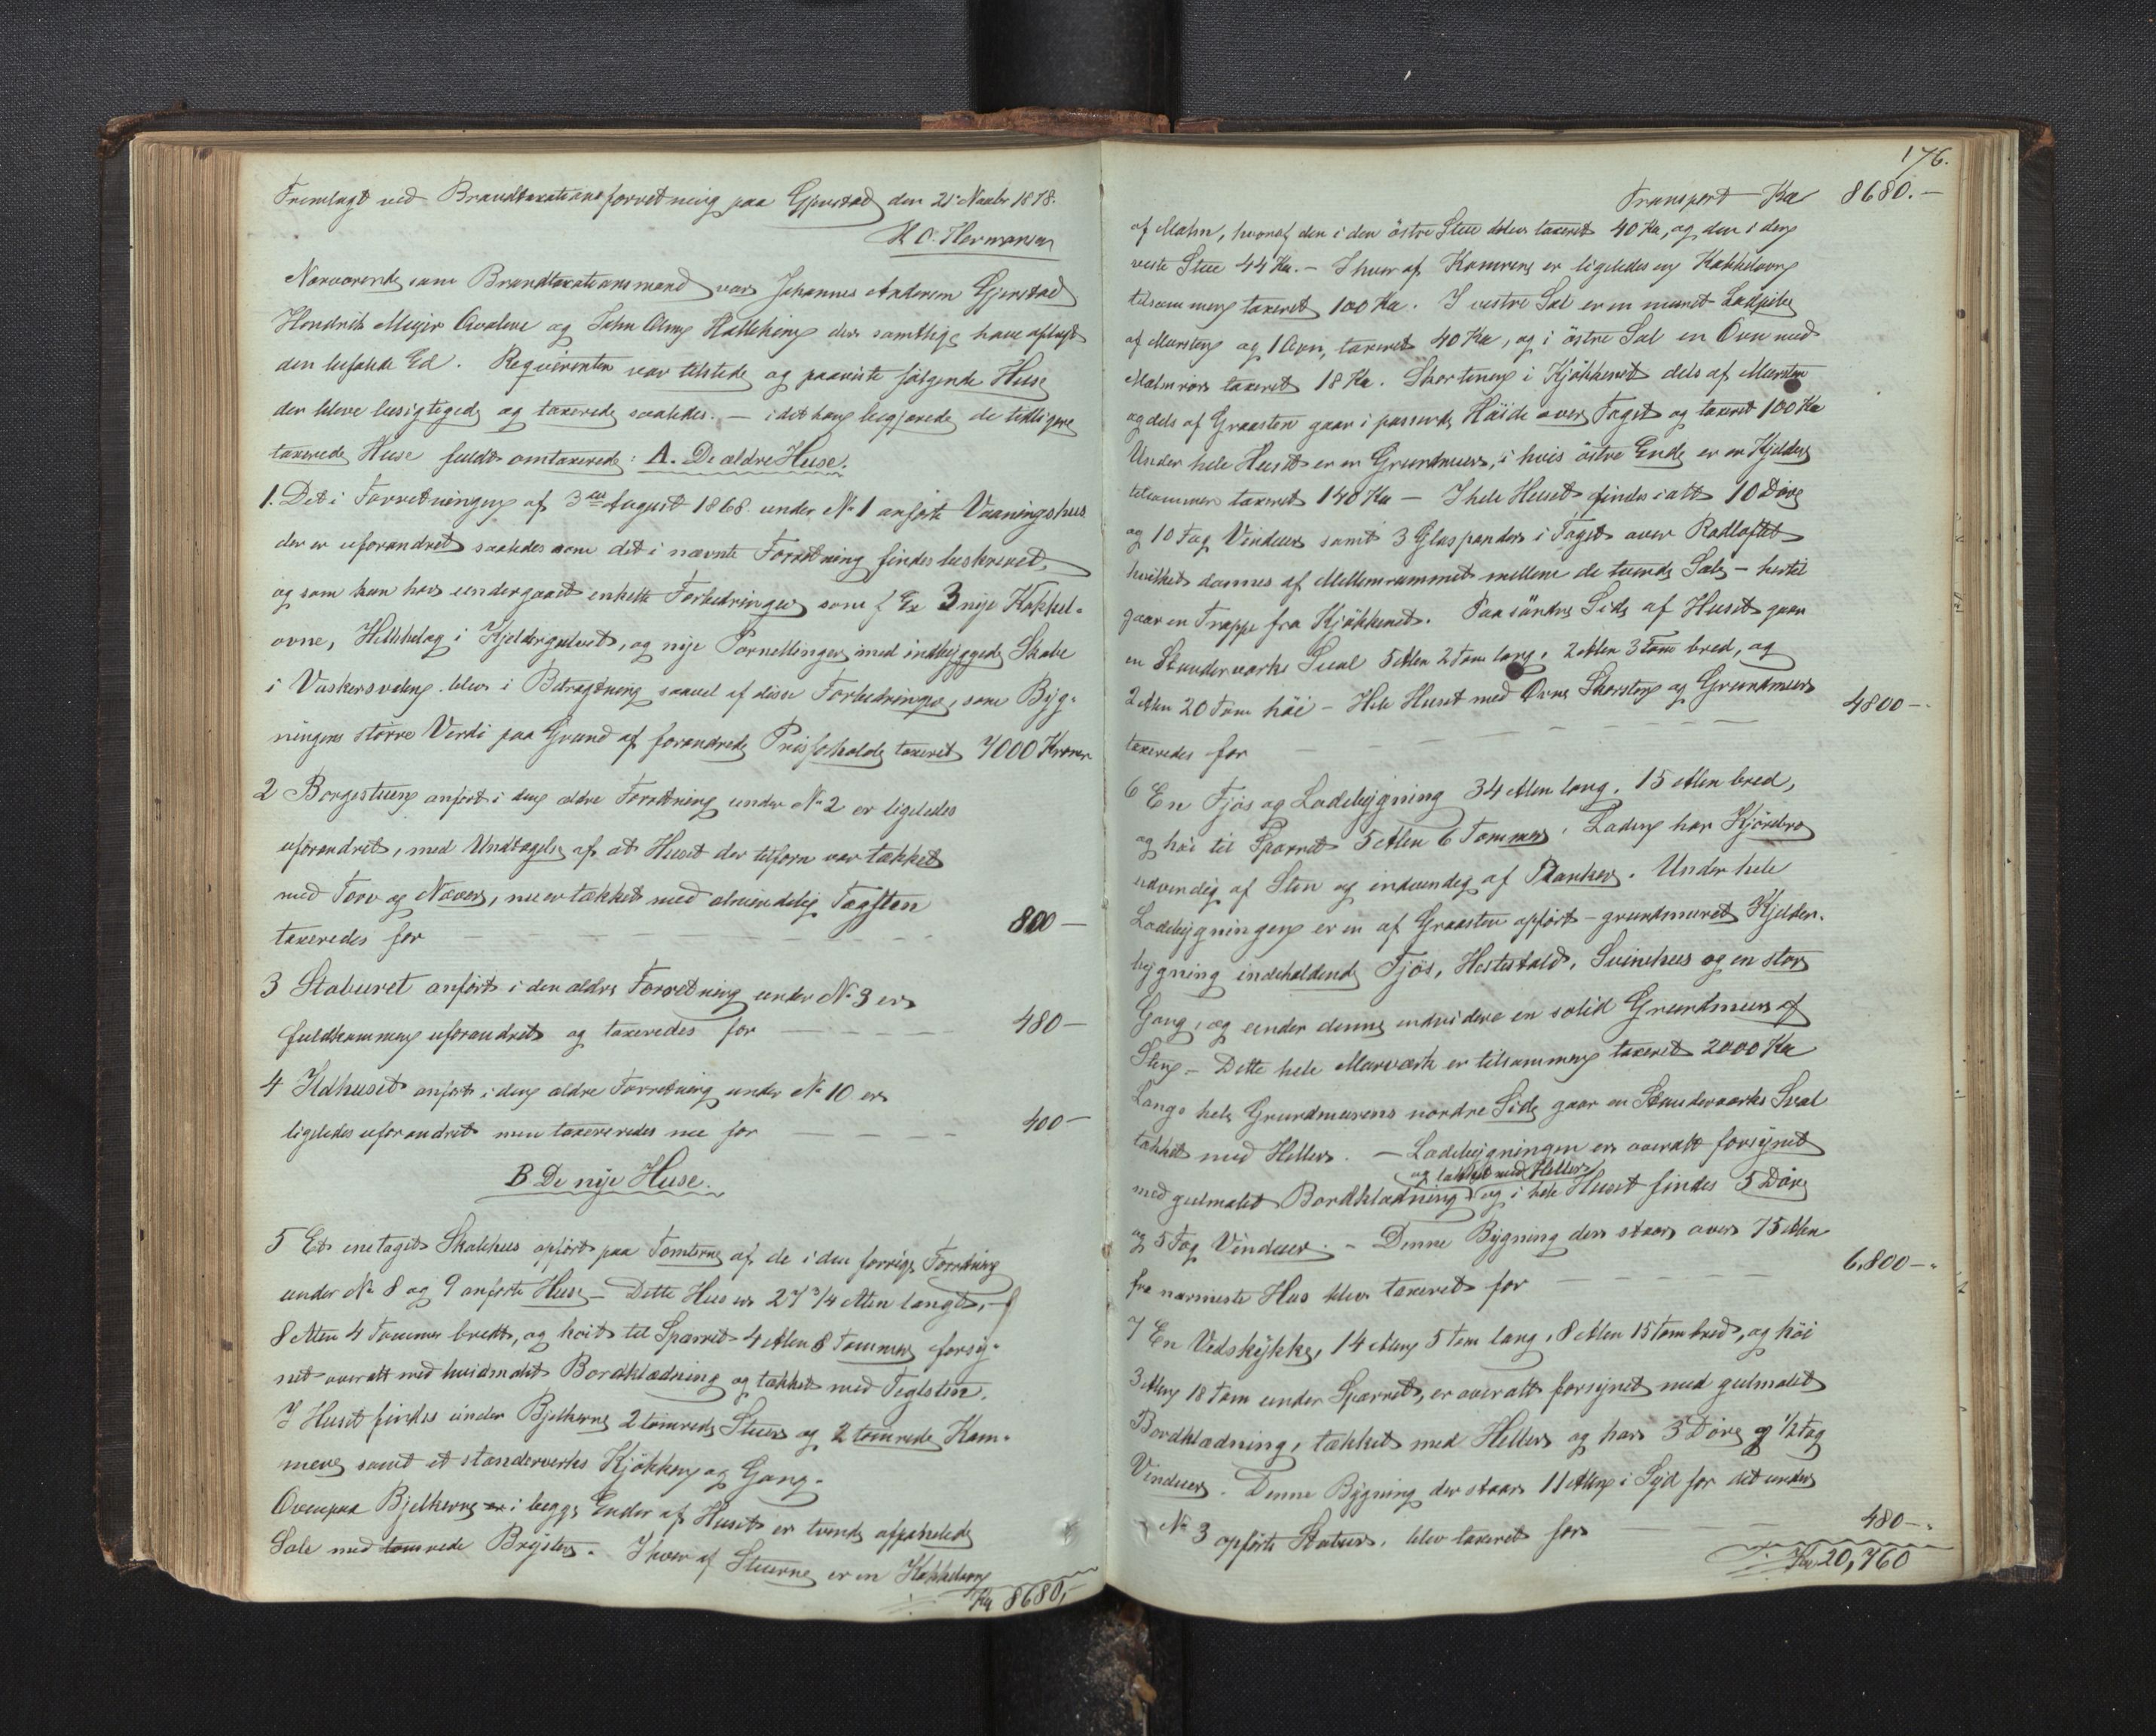 Fremlagt ved Brandtaxationsforretning paa Gjerstad den 21 Novbr 1878.
H O. Hermansen
Nærværende som Brandtaxationsmænd var Johannes Andersen Gjerstad
Hendrik Meyer Qvalene og John Olsen der samtlige have aflagt
den befalede Ed. Reqvirenten var tilstede og paaviste følgende Huse
der bleve besigtigede og taxerede saaledes. – idet han begjærede de tidligere
taxerede Huse fuldt omtaxerede: A. De ældre Huse.
1. Det i Forretningen af 3die August 1868 under No 1 anførte Vaaningshus
der er uforandret saaledes som det i nævnte Forretning findes beskrevet,
og som kun har undergaaet enkelte Forbedringer som f Ex 3 nye Kakkel-
ovne, Hellelag i Kjeldergulvet, og nye Pannellinger med indbyggede Skabe
i blev i Betragtning saavel af disse Forbedringer, som Byg-
ningens større Verdi paa Grund af forandrede Prisforholde taxeret 7000 Kroner
2 Borgestuen anført i den ældre Forretning under No 2 er ligeledes
uforandret, med Undtagelse af at Huset der tilforn var tækket
med Torv og Næver, nu er tækket med almindelig Tagsten
taxeredes for – – – – – – – – 800 –
3 Staburet anført i den ældre Forretning under No 3 er
fuldkommen uforandret og taxeredes for – – – – 480 –
4 Ildhuset anført i den ældre Forretning under No 10 er
ligeledes uforandret men taxereredes nu for – – – – 400 –
B De nye Huse.
5 Et enetaget Skalhus opført paa Tomterne af de i den forrige Forretning
under No 8 og 9 anførte Huse – Dette Hus er 27 3/4 Alen langt,
8 Alen 4 Tommer bredt, og høit til Sparret 4 Alen 8 Tommer forsy-
net overalt med hvidmalet Bordklædning og tækket med Teglsten.
I Huset findes under Bjelkerne 2 tømrede Stuer og 2 tømrede Kam-
mere samt et standerverks Kjøkken og Gang.
Ovenpaa Bjelkerne er i begge Ender af Huset er tvende afpanelede
Sale med tømrede Bryster. I hver af Stuerne er en Kakkelovn
Kr 8680,-
176.
Transport Kr 8680.–
af Malm, hvoraf den i den østre Stue blev taxeret 40 Kr, og den i den
veste Stue 44 Kr. – I hver af Kamrene er ligeledes en Kakkelovn
tilsammen taxeret 100 Kr. I vestre Sal er en muret Ladpibe
af Mursten og 1 Ovn, taxeret 40 Kr, og i østre Sal en Ovn med
Malmrør taxeret 18 Kr. Skorstenen i Kjøkkenet dels af Mursten
og dels af Graasten gaar i passende Høide over Taget og taxeret 100 Kr
Under hele Huset er en Grundmuur, i hvis østre Ende er en Kjelder
tilsammen taxeret 140 Kr – I hele Huset findes i alt 10 Døre
og 10 Fag Vinduer samt 3 Glaspander i Taget over Rodloftet
hvilket dannes af Mellemrummet mellem de tvende Sale – hertil
gaar en Trappe fra Kjøkkenet. Paa søndre Side af Huset gaar
en Standerverks Sval 5 Alen 2 Tom lang, 2 Alen 3 Tom bred, og
2 Alen 20 Tom høi – Hele Huset med Ovne Skorsten og Grundmuur
taxeredes for – – – – – – – – 4800 –
6 En Fjøs og Ladebygning 34 Alen lang, 15 Alen bred,
og høi til Sparret 5 Alen 6 Tommer. Laden har Kjørebro
udvendig af Sten og indvendig af Planker. Under hele
Ladebygningen er en af Graasten opført – grundmuret Kjelder-
bygning indeholdende Fjøs, Hestestald, Svinehus og en stor
Gang, og under denne endvidere en solid Grundmuur af
Sten – Dette hele Murværk er tilsammen taxeret 2000 Kr
Langs hele Grundmurens nordre Side gaar en Standerværks Sval
tækket med Heller. – Ladebygningen er overalt forsynet
og tækket med Heller
med gulmalet Bordklædning og i hele Huset findes 5 Døre
og 5 Fag Vinduer. – Denne Bygning der staar over 75 Alen
fra nærmeste Hus blev taxeret for – – – – – 6,800 –
7 En Vedskykke, 14 Alen 5 Tom lang, 8 Alen 15 Tom bred, og høi
3 Alen 18 Tom under Sparret, er overalt forsynet med gulmalet
Bordklædning, tækket med Heller og har 3 Døre og 1/2 Fag
Vinduer. Denne Bygning der staar 11 Alen i Syd for det under
No 3 opførte Stabur, blev taxeret for – – 480 –
Kr 20,760